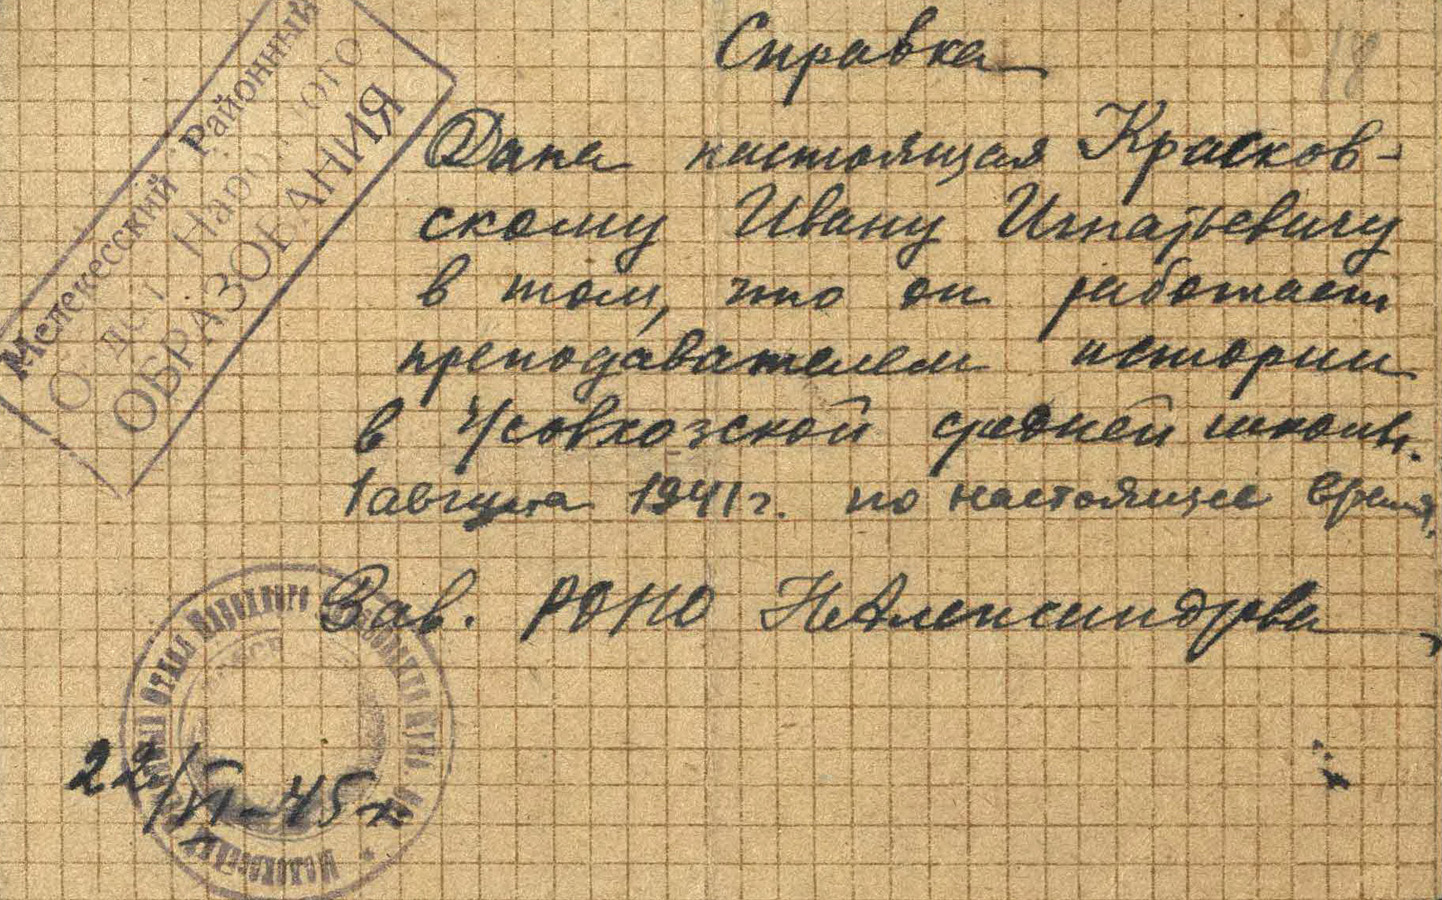 Мелекесский Районный
Отдел Народного
ОБРАЗОВАНИЯ
18
Справка
Дана настоящая Красков-
скому Ивану Игнатьевичу
в том, что он работает
преподавателем истории
в средней школе.
1 августа 1941 г. по настоящее время.
Зав. РОНО Н Александрова
Отдел Народного Образования
22/VI-45 г.